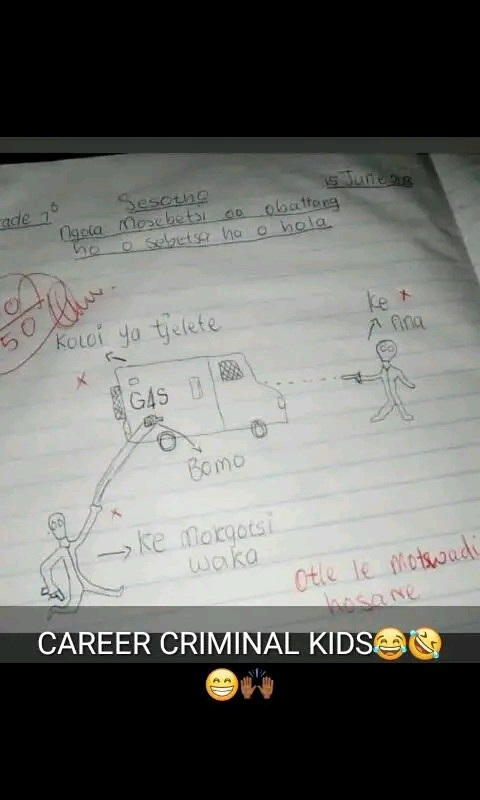 ade 7b
Sesotho
15 June 2018
Ngola Mosebetsi oo obattang
ho o sebetsa ha o hola
0
50
Koloi ya tjelete
ke
nna
G4S
Bomo
ke mokgotsi
waka
Otle le motswadi
hosane
CAREER CRIMINAL KIDS😂🤣
😁🙌🏾